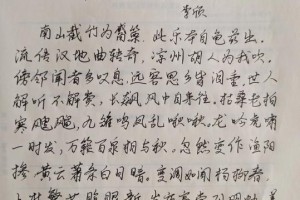 李颀
南山截竹为觱篥,此乐本自龟兹出。
流传汉地曲转奇,凉州胡人为我吹。
傍邻闻者多叹息,远客思乡皆泪垂。世人
解听不解赏,长飙风中自来往。枯桑老柏
寒飕飗,九雏鸣凤乱啾啾。龙吟虎啸
一时发,万籁百泉相与秋。忽然更作渔阳
掺,黄云萧条白日暗。变调如闻杨柳春,
上林繁花照眼新。岁夜高堂列明烛,美